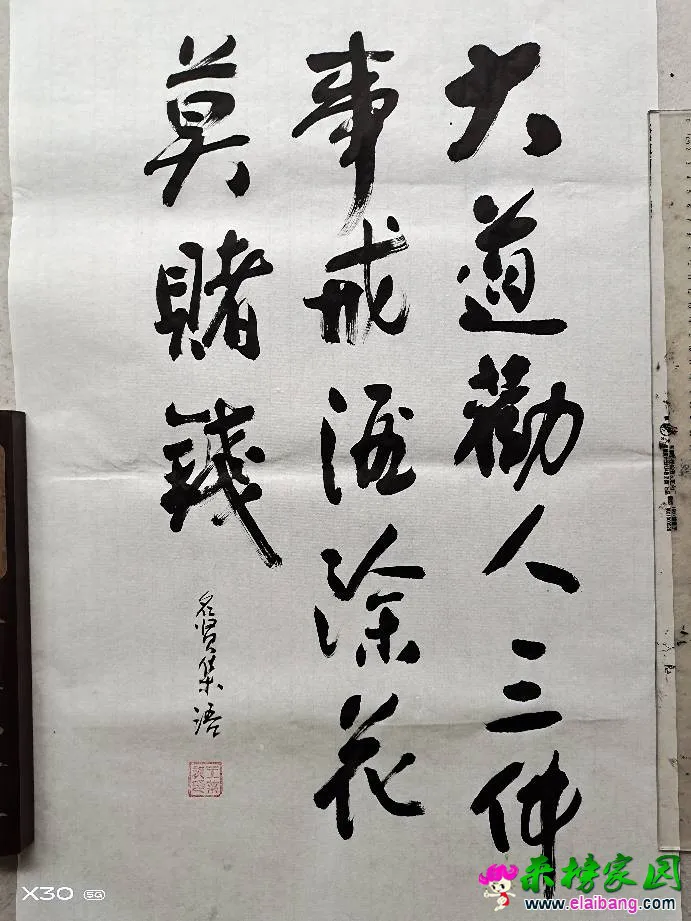 大道勸人三件
事戒酒除花
莫賭錢
名贤集语
X30 5G
来榜家园
www.elaibang.com